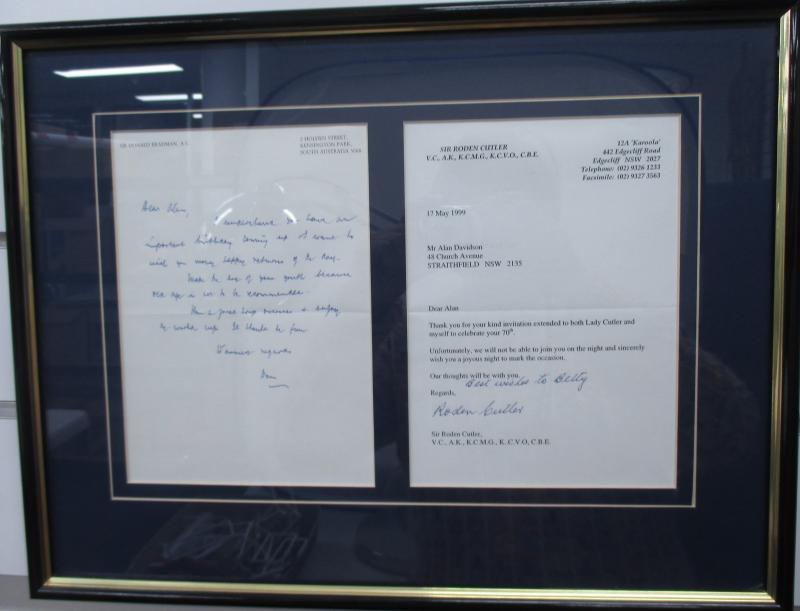 SIR DONALD BRADMAN, A.C.
2 HOLDEN STREET,
KENSINGTON PARK,
SOUTH AUSTRALIA 5068
Dear Alan,
I understand you have an
important birthday coming up & want to
wish you many happy returns of the day.
Make the use of your youth because
old age is not to be recommended.
Have a great and enjoy
It should be fun
Warmest regards
Don
SIR RODEN CUTLER
V.C., A.K., K.C.M.G., K.C.V.O., C.B.E.
12A 'Karoola'
442 Edgecliff Road
Edgecliff NSW 2027
Telephone: (02) 9326 1233
Facsimile: (02) 9327 3563
17 May 1999
Mr Alan Davidson
48 Church Avenue
STRAITHFIELD NSW 2135
Dear Alan
Thank you for your kind invitation extended to both Lady Cutler and
myself to celebrate your 70th.
Unfortunately, we will not be able to join you on the night and sincerely
wish you a joyous night to mark the occasion.
Our thoughts will be with you.
Best wishes to Betty
Regards,
Roden Cutler
Sir Roden Cutler,
V.C., A.K., K.C.M.G., K..C.V.O, C.B.E.